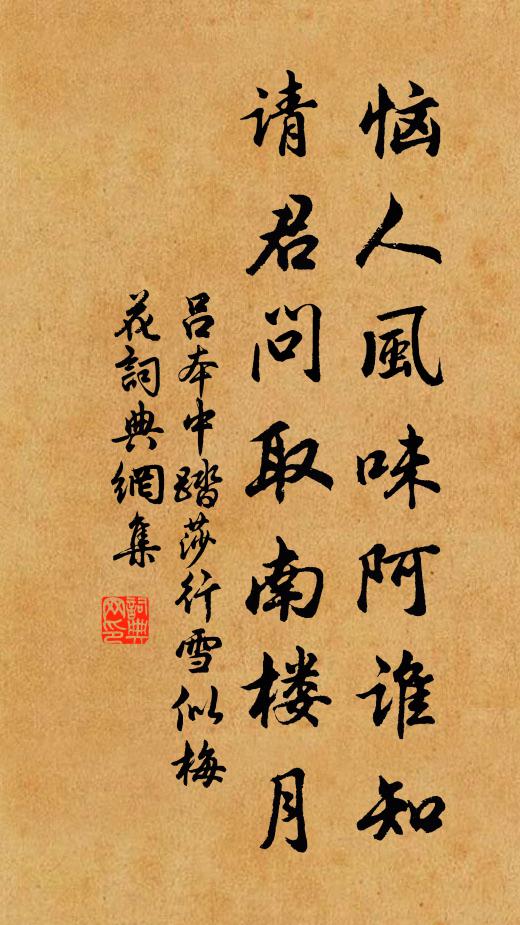 恼人風味阿谁知
请君问取南楼月
吕本中踏莎行雪似梅
花詞典網集
詞典
网印